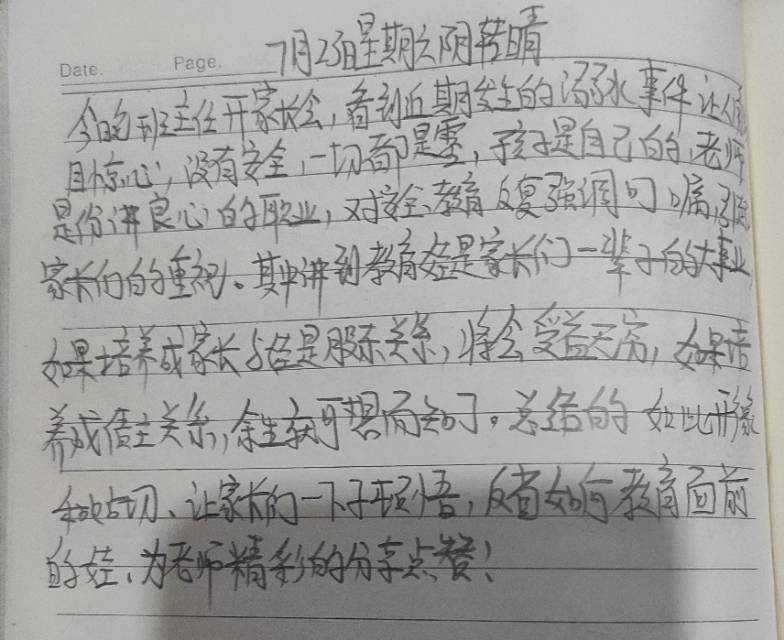 Date. Page. 7月23日星期六阴转晴
今晚班主任开家长会,看到近期发生的溺水事件让人触
目惊心,没有安全,一切都是零,孩子是自己的,老师
是份讲良心的职业,对安全教育反复强调叮嘱,引起
家长们的重视。其中讲到教育娃是家长们一辈子的大事业
如果培养成家长与娃是股东关系,将会受益无穷,如果培
养成债主关系,余生就可想而知了。总结的如此形象
和贴切、让家长们一下子顿悟,反省如何教育面前
的娃、为老师精彩的分享点赞!